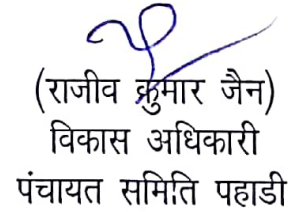 (राजीव कुमार जैन)
विकास अधिकारी
पंचायत समिति पहाडी